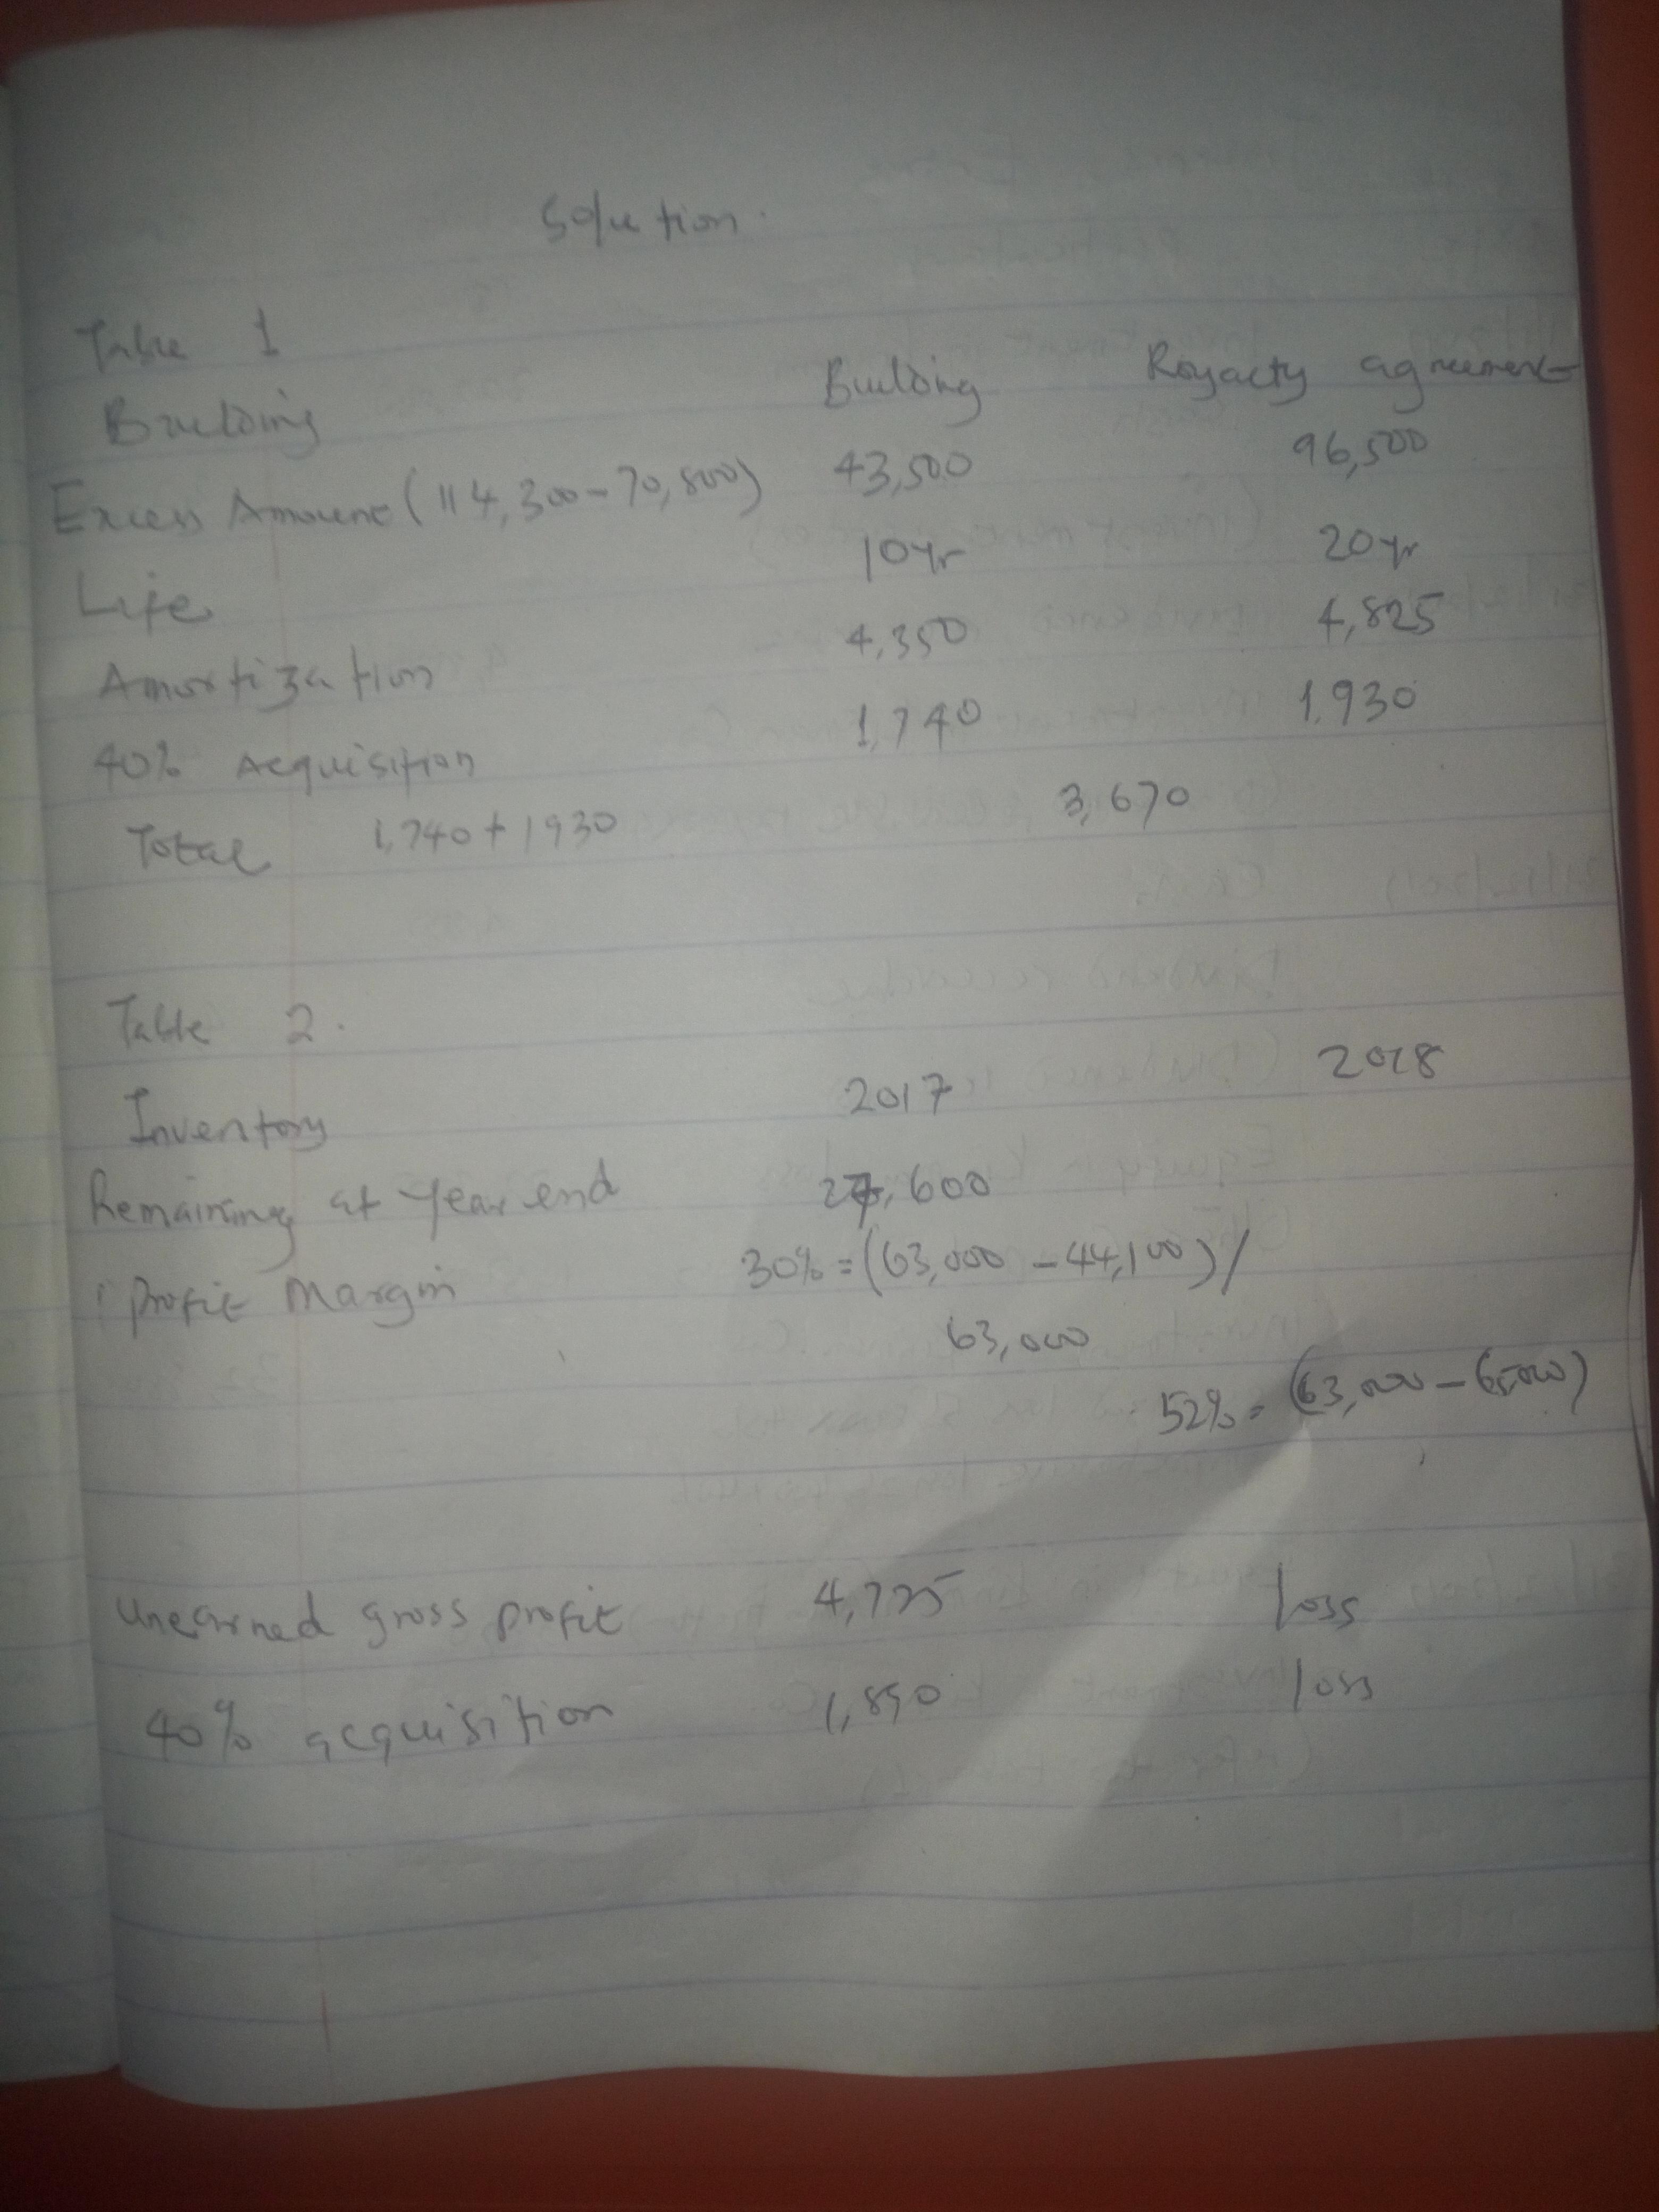 Solution.
Table 1
Building Building Royalty agreement
Excess Amount (114,300-70,800) 43,500 96,500
Life 10yr 20yr
Amortization 4,350 4,825
40% Acquisition 1,740 1,930
Total 1,740+1930 3,670
Table 2.
Inventory 2017 2018
Remaining at Year end ,600
Profit Margin 30%=(63,000-44,100)/
63,000
52%= (63,000-65,000)
Unearned gross profit 4,725 loss
40% acquisition 1,890 loss